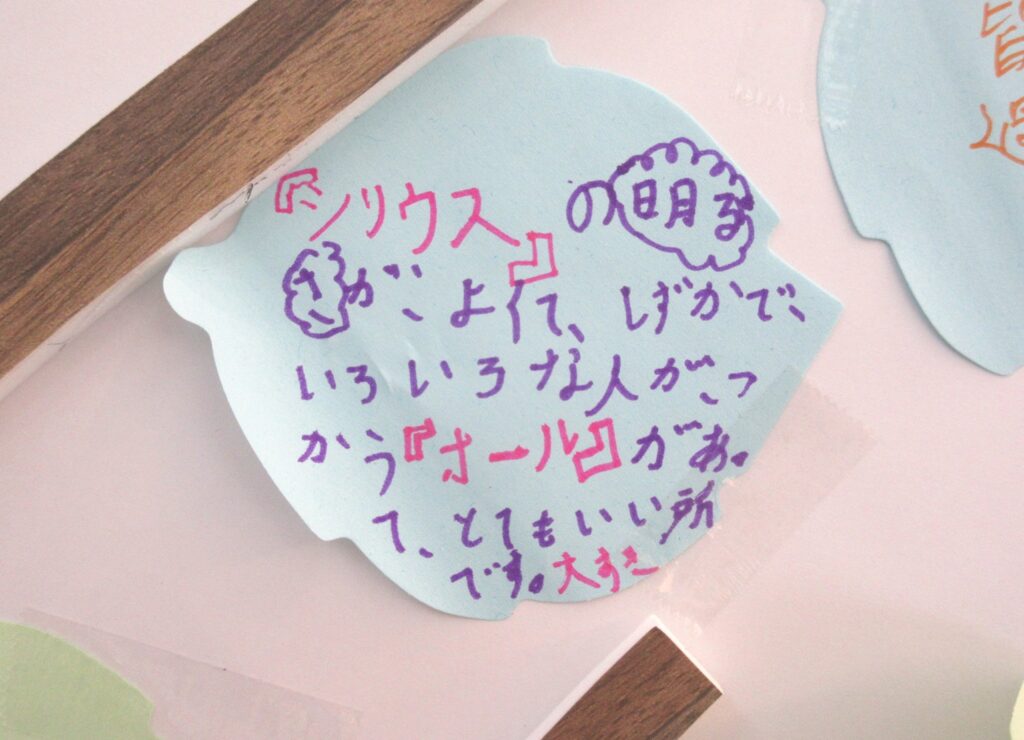 『シリウス』の明る
さがこよくて、しずかで、
いろいろな人がつ
かう『ホール』があっ
て、とてもいい所
です。大すき